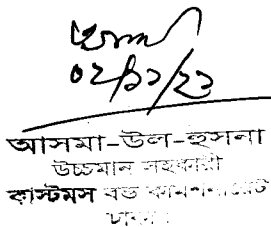 ০২/১১/২৩
আসমা-উল-হুসনা
উচ্চমান সহকারী
কাস্টমস বন্ড কমিশনারেট
ঢাকা।